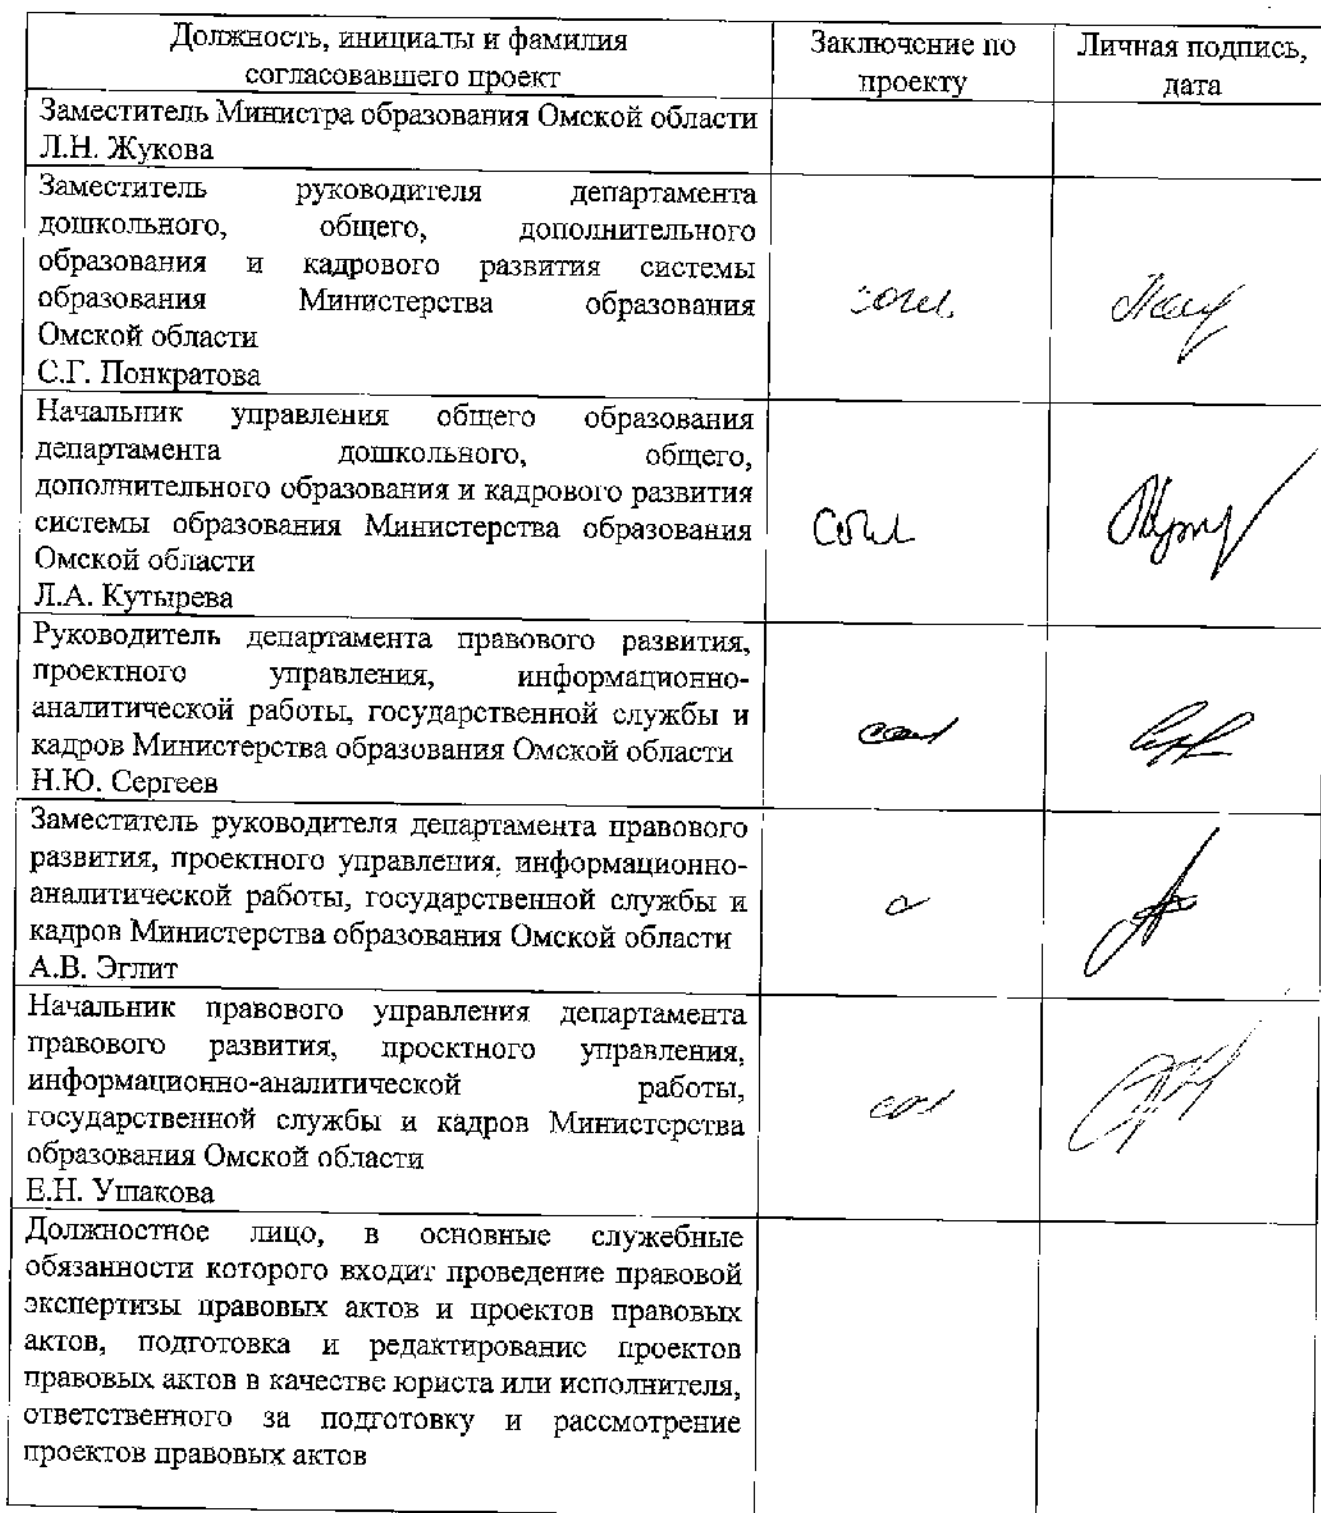 Должность, инициалы и фамилия
согласовавшего проект
Заключение по
проекту
Личная подпись,
дата
Заместитель Министра образования Омской области
Л.Н. Жукова
Заместитель руководителя департамента
дошкольного, общего, дополнительного
образования и кадрового развития системы
образования Министерства образования
Омской области
С.Г. Понкратова
согл.
Начальник управления общего образования
департамента дошкольного, общего,
дополнительного образования и кадрового развития
системы образования Министерства образования
Омской области
Л.А. Кутырева
согл
Руководитель департамента правового развития,
проектного управления, информационно-
аналитической работы, государственной службы и
кадров Министерства образования Омской области
Н.Ю. Сергеев
Заместитель руководителя департамента правового
развития, проектного управления, информационно-
аналитической работы, государственной службы и
кадров Министерства образования Омской области
А.В. Эглит
Начальник правового управления департамента
правового развития, проектного управления,
информационно-аналитической работы,
государственной службы и кадров Министерства
образования Омской области
Е.Н. Ушакова
Должностное лицо, в основные служебные
обязанности которого входит проведение правовой
экспертизы правовых актов и проектов правовых
актов, подготовка и редактирование проектов
правовых актов в качестве юриста или исполнителя,
ответственного за подготовку и рассмотрение
проектов правовых актов